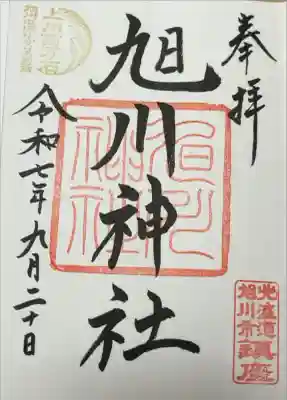 奉拝
旭川神社
令和七年九月二十日
旭川
神社
北海道
旭川市